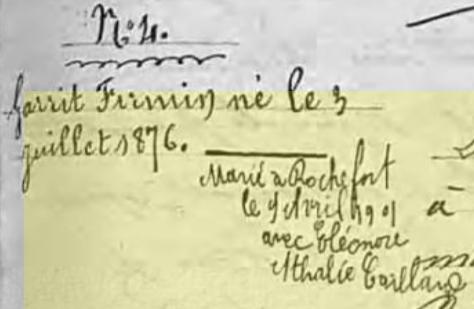 N: 4.
Jarrit Firmin né le 3
juillet 1876.
Marié à Rochefort
le 9 Avril 1901
avec Eléonore
Athalie
à